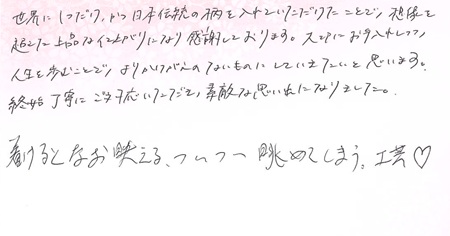 世界に1つだけ、かつ日本伝統の柄を入れていただけたことで、想像を
超した上品な仕上がりになり感謝しております。スマにお手入れしつつ、
人生を歩むことで、よりかけがえのないものにしていきたいと思います。
終始丁寧にご対応いただき、素敵な思い出になりました。
着けるとなお映える、ついつい眺めてしまう。工芸♡